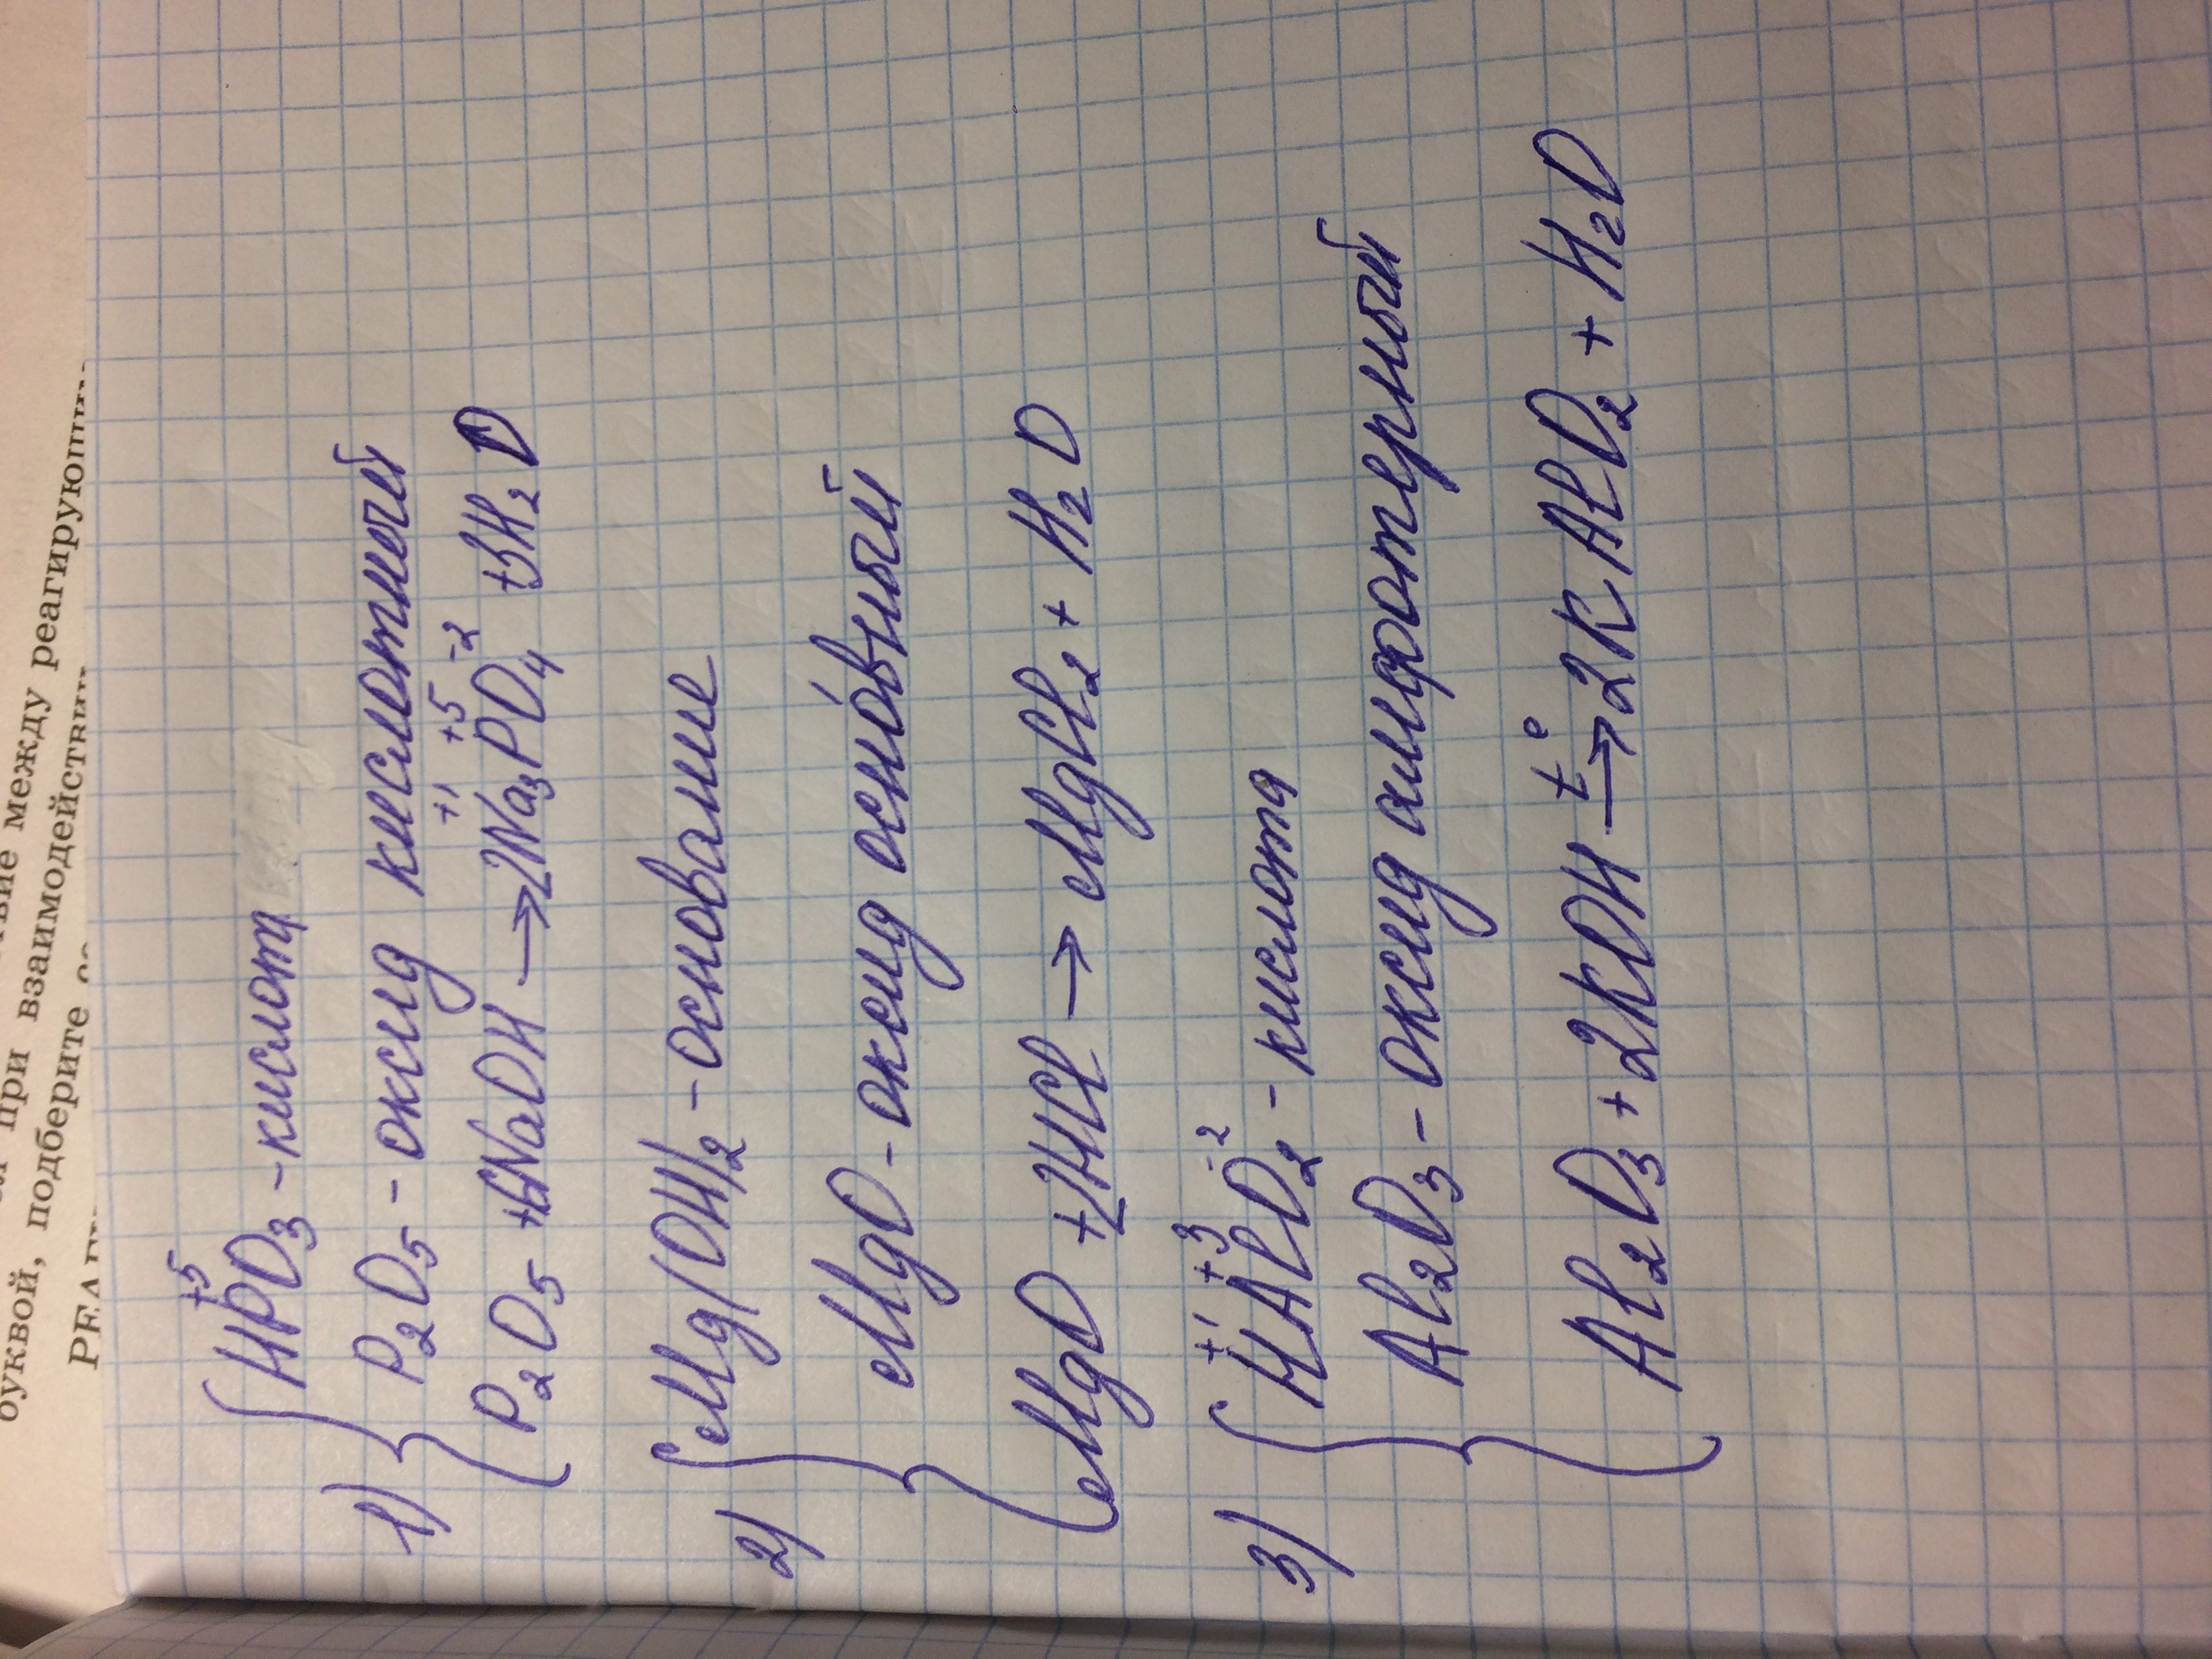 буквой, подберите
при взаимодействии
между реагирующи
1) HPO₃ - кислота
+5
P₂O₅ - оксид кислотный
+1 +5 -2
P₂O₅ +6NaOH → 2Na₃PO₄ +3H₂O
2) Mg(OH)₂ - основание
MgO - оксид осно́вный
MgO +2HCl → MgCl₂ + H₂O
+1 +3 -2
3) HAlO₂ - кислота
Al₂O₃ - оксид амфотерный
Al₂O₃ + 2KOH t° → 2KAlO₂ + H₂O